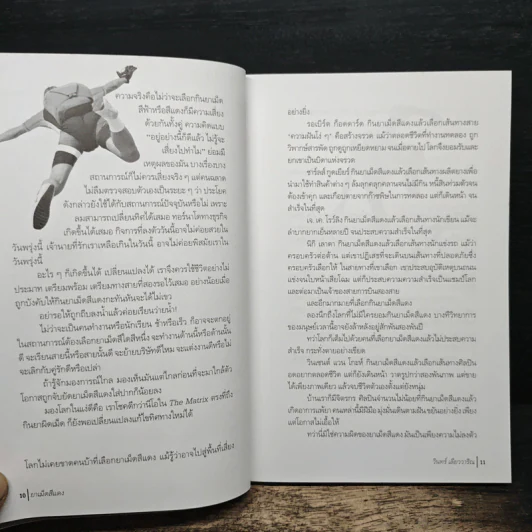 ความจริงคือไม่ว่าจะเลือกกินยาเม็ด
สีฟ้าหรือสีแดงก็มีความเสี่ยง
ด้วยกันทั้งคู่ ความคิดแบบ
"อยู่อย่างนี้ก็ดีแล้ว ไม่รู้จะ
เสี่ยงไปทำไม" ย่อมมี
เหตุผลของมัน บางเรื่องบาง
สถานการณ์ก็ไม่ควรเสี่ยงจริง ๆ แต่คนฉลาด
ไม่ลืมตรวจสอบตัวเองเป็นระยะ ๆ ว่า ประโยค
ดังกล่าวยังใช้ได้กับสถานการณ์ปัจจุบันหรือไม่ เพราะ
ลมสามารถเปลี่ยนทิศได้เสมอ ทอร์นาโดทางธุรกิจ
เกิดขึ้นได้เสมอ กิจการที่ลงตัววันนี้อาจไม่ค่อยสวยใน
วันพรุ่งนี้ เจ้านายที่รักเราเหลือเกินในวันนี้ อาจไม่ค่อยพิสมัยเราใน
วันพรุ่งนี้
อะไร ๆ ก็เกิดขึ้นได้ เปลี่ยนแปลงได้ เราจึงควรใช้ชีวิตอย่างไม่
ประมาท เตรียมพร้อม เตรียมทางสายที่สองรอไว้เสมอ อย่างน้อยเมื่อ
ถูกบังคับให้กินยาเม็ดสีแดงกะทันหันจะได้ไม่เขว
อย่ารอให้ถูกถีบลงน้ำแล้วค่อยเรียนว่ายน้ำ!
ไม่ว่าจะเป็นคนทำงานหรือนักเรียน ช้าหรือเร็ว ก็อาจจะตกอยู่
ในสถานการณ์ต้องเลือกยาเม็ดสีใดสีหนึ่ง จะทำงานด้านนี้หรือด้านนั้น
ดี จะเรียนสายนี้หรือสายนั้นดี จะย้ายบริษัทดีไหม จะแต่งงานดีหรือไม่
จะเลิกกับคู่รักดีหรือเปล่า
ถ้ารู้จักมองการณ์ไกล มองเห็นมันแต่ไกลก่อนที่จะมาใกล้ตัว
โอกาสถูกจับยัดยาเม็ดสีแดงใส่ปากก็น้อยลง
มองโลกในแง่ดีคือ เราโชคดีกว่านีโอใน The Matrix ตรงที่ถึง
กินยาผิดเม็ด ก็ยังพอเปลี่ยนแปลงแก้ไขทิศทางใหม่ได้
โลกไม่เคยขาดคนบ้าที่เลือกยาเม็ดสีแดง แม้รู้ว่าอาจไปสู่พื้นที่เสี่ยง
10 ยาเม็ดสีแดง
อย่างยิ่ง
รอเบิร์ต ก็อดดาร์ด กินยาเม็ดสีแดงแล้วเลือกเส้นทางสาย
'ความฝันโง่ ๆ' คือสร้างจรวด แม้ว่าตลอดชีวิตที่ทำงานทดลอง ถูก
วิพากษ์สารพัด ถูกดูถูกเหยียดหยาม จนเมื่อตายไป โลกจึงยอมรับและ
ยกเขาเป็นบิดาแห่งจรวด
ชาร์ลส์ กูดเยียร์ กินยาเม็ดสีแดงแล้วเลือกเส้นทางผลิตยางเพื่อ
นำมาใช้ทำสินค้าต่าง ๆ ล้มลุกคลุกคลานจนไม่มีกิน หนี้สินท่วมตัวจน
ต้องเข้าคุก และเกือบตายจากก๊าซพิษในการทดลอง แต่ก็เดินหน้า จน
สำเร็จในที่สุด
เจ.เค. โรว์ลิง กินยาเม็ดสีแดงแล้วเลือกเส้นทางนักเขียน แม้จะ
ลำบากยากเข็ญหลายปี จนประสบความสำเร็จในที่สุด
นิกี เลาดา กินยาเม็ดสีแดงแล้วเลือกเส้นทางนักแข่งรถ แม้ว่า
ครอบครัวต่อต้าน แต่เขาปฏิเสธที่จะเดินบนเส้นทางที่ปลอดภัยซึ่ง
ครอบครัวเลือกให้ ในสายทางที่เขาเลือก เขาประสบอุบัติเหตุบนถนน
แข่งจนใบหน้าเสียโฉม แต่ก็ประสบความความสำเร็จเป็นแชมป์โลก
และต่อมาเป็นเจ้าของสายการบินสองสาย
และอีกมากมายที่เลือกกินยาเม็ดสีแดง
ลองนึกถึงโลกที่ไม่มีใครยอมกินยาเม็ดสีแดง บางทีวิทยาการ
ของมนุษย์เวลานี้อาจยังล้าหลังอยู่สักพันสองพันปี
ทว่าโลกก็เต็มไปด้วยคนที่เลือกกินยาเม็ดสีแดงแล้วไม่ประสบความ
สำเร็จ กระทั่งตายอย่างขมขื่น
วินเซนต์ แวน โกะห์ กินยาเม็ดสีแดงแล้วเลือกเส้นทางศิลปิน
อดอยากตลอดชีวิต แต่ก็ยังเดินหน้า วาดรูปกว่าสองพันภาพ แต่ขาย
ได้เพียงภาพเดียว แล้วจบชีวิตตัวเองตั้งแต่ยังหนุ่ม
บ้านเราก็มีจิตรกร ศิลปินจำนวนไม่น้อยที่กินยาเม็ดสีแดงแล้ว
เกิดอาการแพ้ยา คนเหล่านี้มีฝีมือ มุ่งมั่นเดินตามฝัน ขยันอย่างยิ่ง เพียง
แต่โอกาสไม่เอื้อให้
ทว่านี่มิใช่ความผิดของยาเม็ดสีแดง มันเป็นเพียงความไม่ลงตัว
วินทร์ เลียววาริณ 11